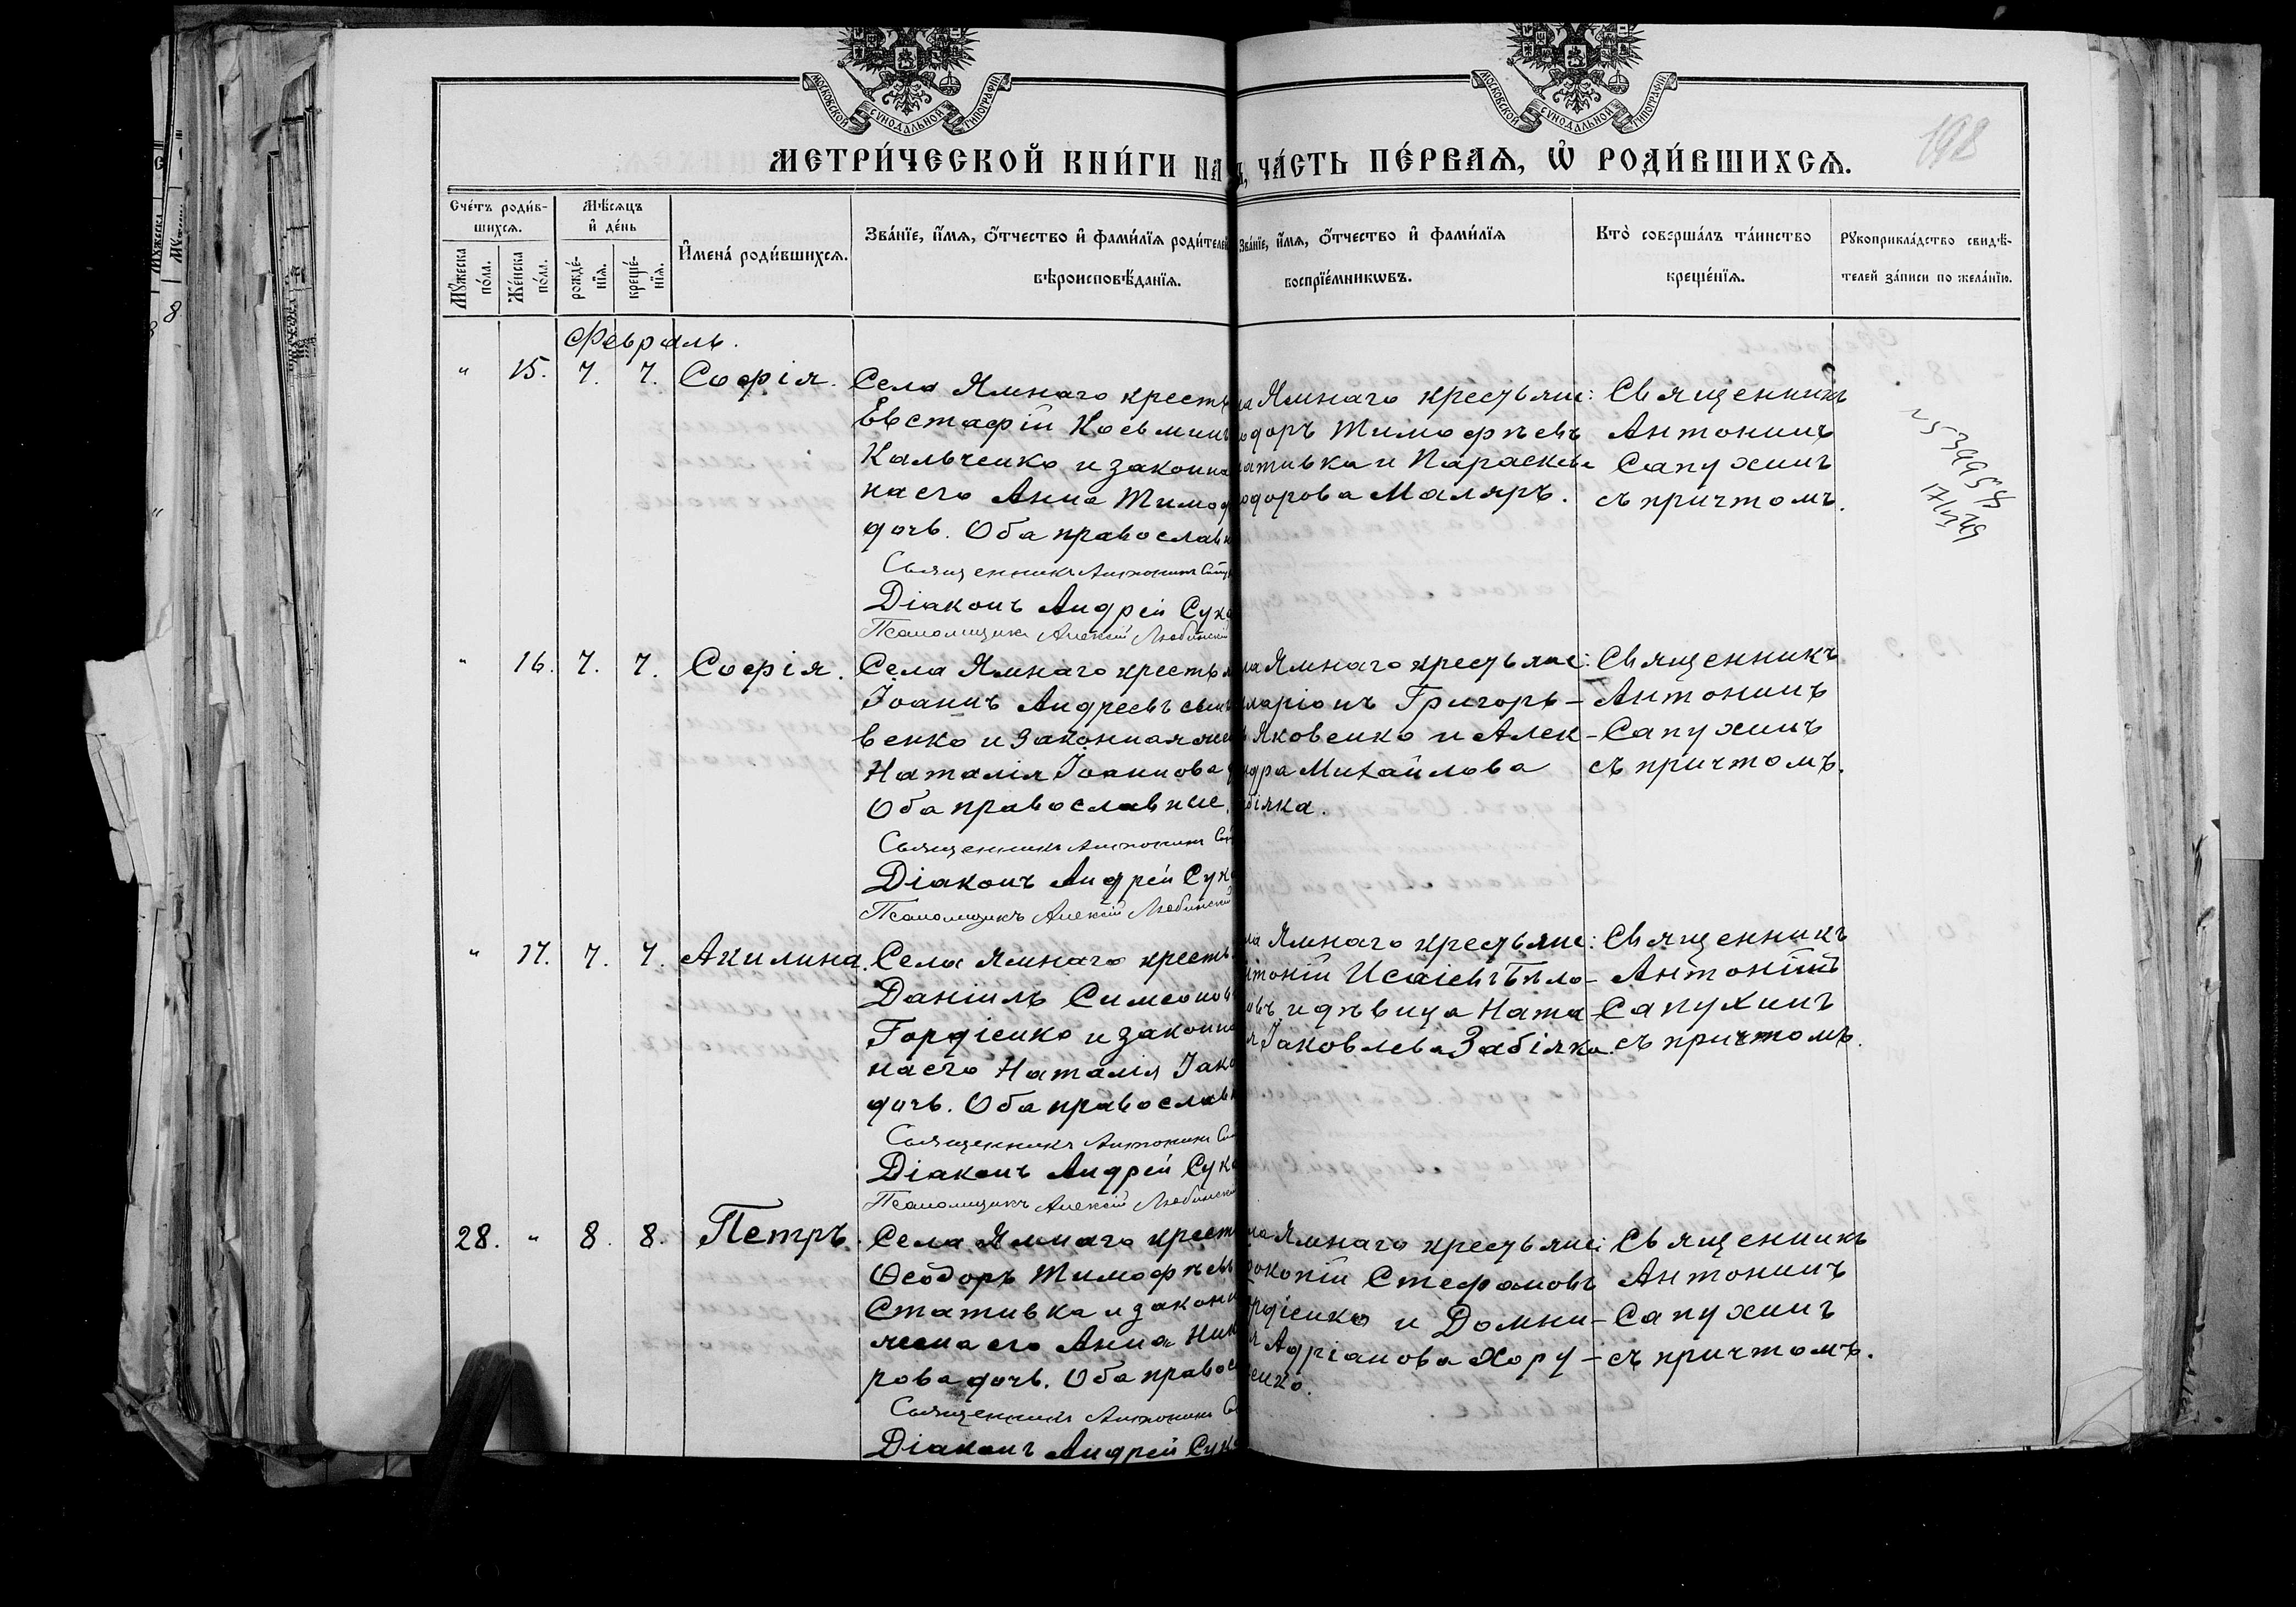 МОСКОВСКОЙ СУНОДАЛЬНОЙ ТИПОГРАФІИ
МОСКОВСКОЙ СУНОДАЛЬНОЙ ТИПОГРАФІИ
МЕТРИ́ЧЕСКОЙ КНИ́ГИ НА
ЧА́СТЬ ПЕ́РВАЯ, Ѡ РОДИ́ВШИХСЯ.
198
Сче́тъ роди́в-
шихся.
Мѣ́сяцъ
и҆ де́нь
Мꙋ́жеска по́ла.
Же́нска по́ла.
рожде́-нїя.
креще́-нїя.
И҆мена̀ роди́вшихся.
Зва́нїе, и҆́мя, ѻ҆́тчество и҆ фами́лїя роди́телей
вѣроисповѣ́данїя.
Зва́нїе, и҆́мя, ѻ҆́тчество и҆ фами́лїя
воспрїе́мникѡвъ.
Кто̀ соверша́лъ та́инство
креще́нїя.
Рꙋкоприкла́дство свидѣ́-
телей за́писи по жела́нїю.
Февраль.
" 15. 7. 7. Софія.
Села Ямнаго кресть
Евстафій Косьминъ
Кальченко и законна
на его Анна Тимоф
дочь. Оба православн
Священникъ Антонинъ Сапу
Діаконъ Андрей Сук
Псаломщикъ Алексій Любинскій
ла Ямнаго крестьян:
одоръ Тимофѣевъ
тативка и Параскева
одорова Маляръ.
Священникъ
Антонинъ
Сапухинъ
съ причтомъ.
" 16. 7. 7. Софія.
Села Ямнаго крестья
Іоаннъ Андреевъ
венко и законная жен
Наталія Іоаннова
Оба православные.
Священникъ Антонинъ Сап
Діаконъ Андрей Сук
Псаломщикъ Алексій Любинскій
ла Ямнаго крестьян:
ларіонъ Григорь-
Яковенко и Алек-
ндра Михайлова
біяка.
Священникъ
Антонинъ
Сапухинъ
съ причтомъ.
" 17. 7. 7. Акилина.
Села Ямнаго кресть
Даніилъ Симеонов
Гордіенко и законна
на его Наталія Іако
дочь. Оба православн
Священникъ Антонинъ Са
Діаконъ Андрей Сук
Псаломщикъ Алексій Любинскій
ла Ямнаго крестьян:
нтоній Исаіевъ Бѣло-
овъ и дѣвица Ната-
я Іаковлева Забіяка.
Священникъ
Антонинъ
Сапухинъ
съ причтомъ.
28. " 8. 8. Петръ.
Села Ямнаго кресть
Ѳеодоръ Тимофѣевъ
Стативка и законн
жена его Анна Ник
рова дочь. Оба правос
Священникъ Антонинъ Са
Діаконъ Андрей Сук
ла Ямнаго крестьян:
рокопій Стефановъ
рдіенко и Домни-
я Адріанова Хору-
енко.
Священникъ
Антонинъ
Сапухинъ
съ причтомъ.